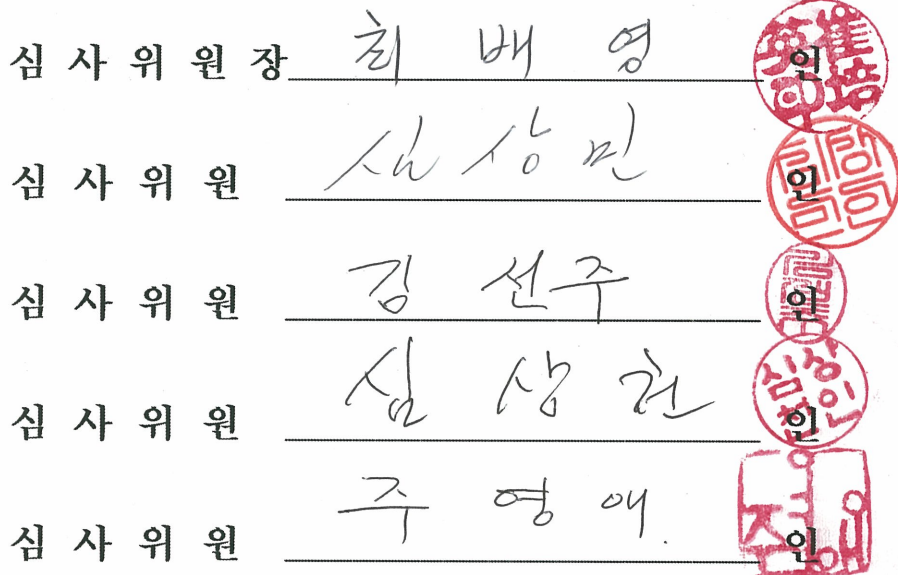 심 사 위 원 장 최 배 영 인
심 사 위 원 심 상 민 인
심 사 위 원 김 선 주 인
심 사 위 원 심 상 천 인
심 사 위 원 주 영 애 인